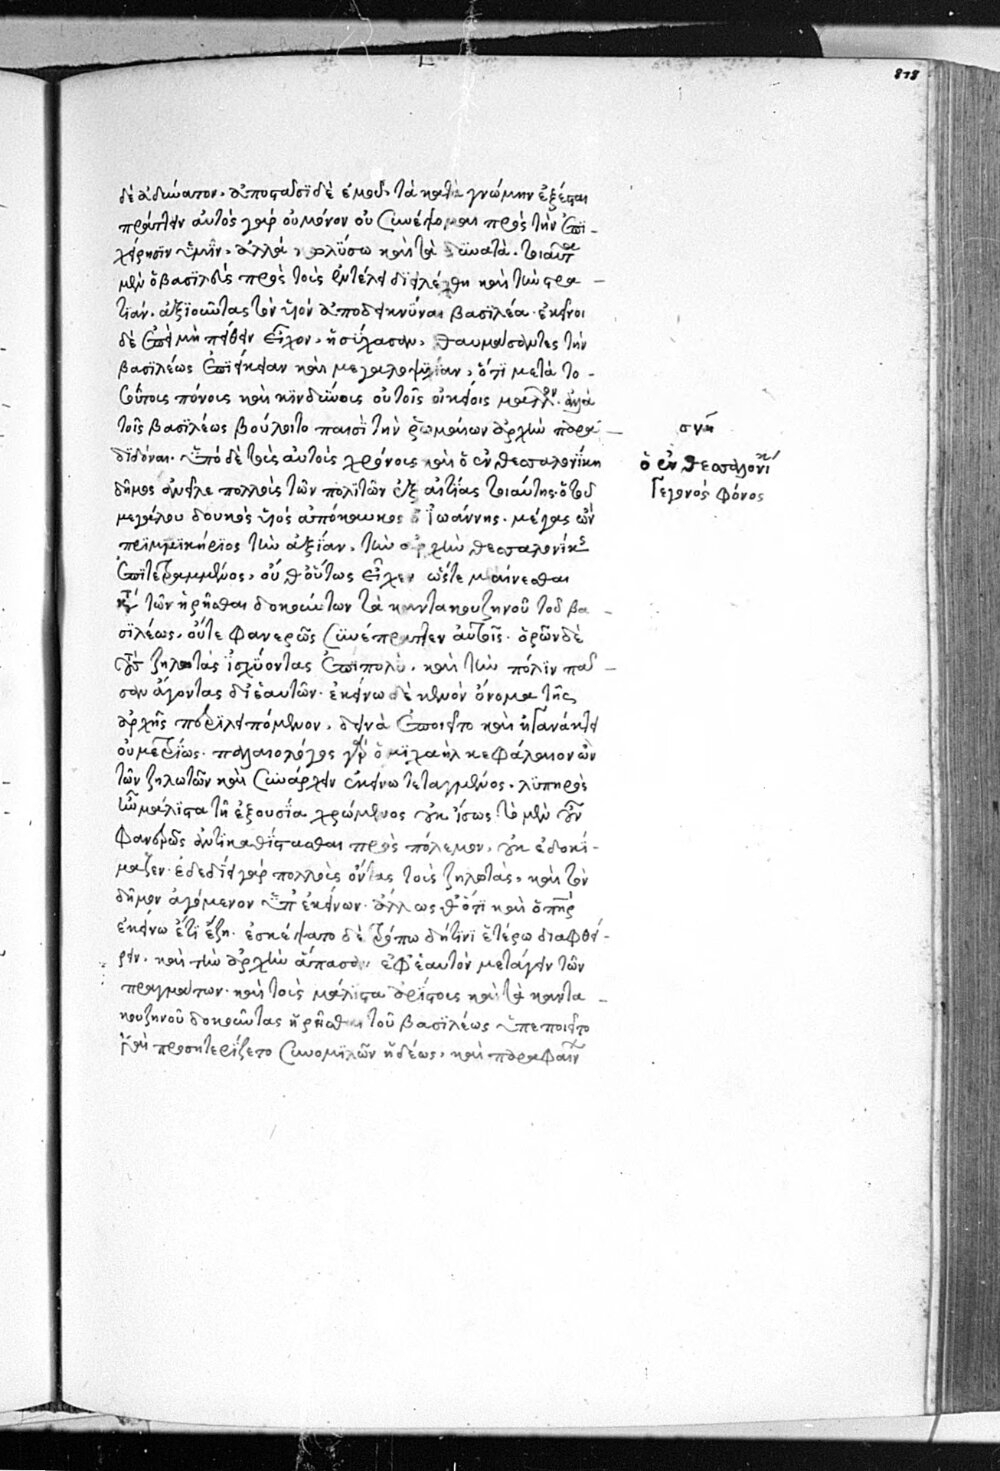 818
δὲ ἀδύνατον. ἀποστᾶσι δὲ ἐμοῦ, τὰ κατὰ γνώμην ἐξέσται
πράττειν αὐτὸς γὰρ οὐ μόνον οὐ συνέψομαι πρὸς τὴν ἐπι-
χείρησιν ὑμῖν, ἀλλὰ κωλύσω καὶ τὰ δυνατά. τοιαῦτα
μὲν ὁ βασιλεὺς πρὸς τοὺς ἐν τέλει διειλέχθη καὶ τὴν στρα-
τιάν. ἀξιοῦντας τὸν υἱὸν ἀποδεικνύναι βασιλέα. ἐκεῖνοι
δὲ ἐπεὶ μὴ πείθειν εἶχον, ἡσύχασαν, θαυμάσαντες τὴν
βασιλέως ἐπιείκειαν καὶ μεγαλοψυχίαν, ὅτι μετὰ το-
σούτοις πόνοις καὶ κινδύνοις οὐ τοῖς οἰκείοις μᾶλλον. ἀλλὰ
τοῖς βασιλέως βούλοιτο παισὶ τὴν ῥωμαίων ἀρχὴν παρα-
διδόναι. ὑπὸ δὲ τοὺς αὐτοὺς χρόνους καὶ ὁ ἐν θεσσαλονίκη
δῆμος ἀνεῖλε πολλοὺς τῶν πολιτῶν ἐξ αἰτίας τοιαύτης. ὁ τοῦ
μεγάλου δουκὸς υἱὸς ἀπόκαυκος ὁ ἰωάννης. μέγας ὢν
πριμμικήριος τὴν ἀξίαν, τὴν ἀρχὴν θεσσαλονίκης
ἐπιτετραμμένος, οὔθ' οὕτως εἶχεν ὥστε μάχεσθαι
κατὰ τῶν ᾑρῆσθαι δοκούντων τὰ καντακουζηνοῦ τοῦ βα-
σιλέως, οὔτε φανερῶς συνέπραττεν αὐτοῖς. ὁρῶν δὲ
τοὺς ζηλωτὰς ἰσχύοντας ἐπιπολὺ, καὶ τὴν πόλιν πᾶ-
σαν ἄγοντας δι' ἑαυτῶν. ἐκείνω δὲ κενὸν ὄνομα τῆς
ἀρχῆς περιλειπόμενον, δεινὰ ἐποιεῖτο καὶ ἠγανάκτει
οὐ μετρίως. παλαιολόγος γὰρ ὁ μιχαὴλ κεφάλαιον ὢν
τῶν ζηλωτῶν καὶ συνάρχειν ἐκείνω τεταγμένος. λυπηρὸς
ἦν μάλιστα τῆ ἐξουσία χρώμενος οὐκ ἴσως. τὸ μὲν οὖν
φανερῶς ἀντικαθίστασθαι πρὸς πόλεμον, οὐκ ἐδοκί-
μαζεν. ἐδεδίει γὰρ πολλοὺς ὄντας τοὺς ζηλωτὰς, καὶ τὸν
δῆμον ἀγόμενον ὑπ' ἐκείνων. ἄλλως θ' ὅτι καὶ ὁ πατὴρ
ἐκείνω ἔτι ἔζη. ἐσκέψατο δὲ τρόπω δή τινι ἑτέρω διαφθεί-
ρειν. καὶ τὴν ἀρχὴν ἅπασαν ἐφ' ἑαυτὸν μετάγειν τῶν
πραγμάτων. καὶ τοὺς μάλιστα ἀρίστους καὶ τὰ καντα-
κουζηνοῦ δοκοῦντας ᾑρῆσθαι τοῦ βασιλέως ὑπεποιεῖτο
καὶ προσηταιρίζετο συνομιλῶν ἡδέως, καὶ παραφαίνων
σνη
ὁ ἐν θεσσαλονίκη
γεγονὸς φόνος